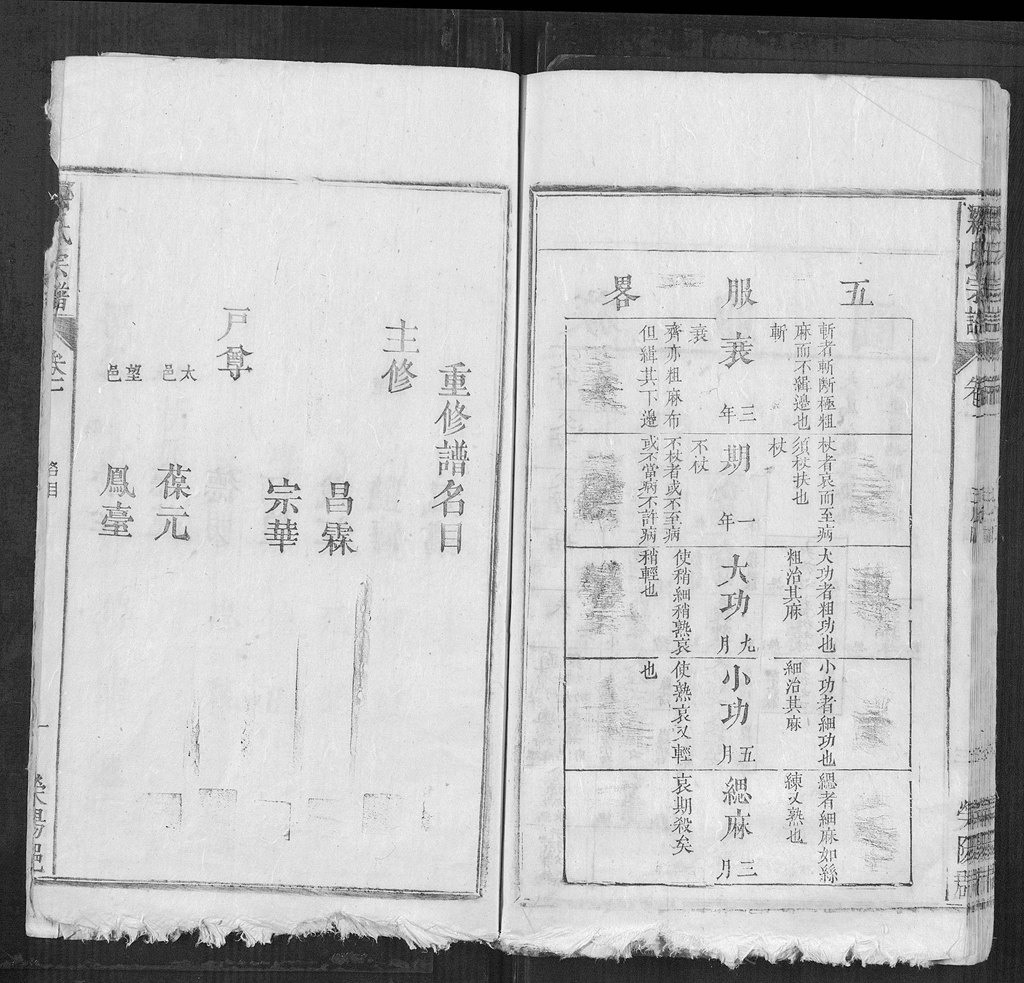 氏宗譜
卷
五服畧
斬者斬斷極粗
麻而不緝邊也
斬
衰 三年
衰
齊亦粗麻布
但緝其下邊
杖者哀而至病
須杖扶也
杖
期 一年
不杖
不杖者或不至病
或不當病不許病
大功者粗功也
粗治其麻
大功 九月
使稍細稍熟哀
稍輕也
小功者細功也
細治其麻
小功 五月
使熟哀又輕
也
緦者細麻如絲
練又熟也
緦麻 三月
哀期殺矣
重修譜名目
主修
昌霖
宗華
戶尊
太邑 葆元
望邑 鳳臺
氏宗譜
一